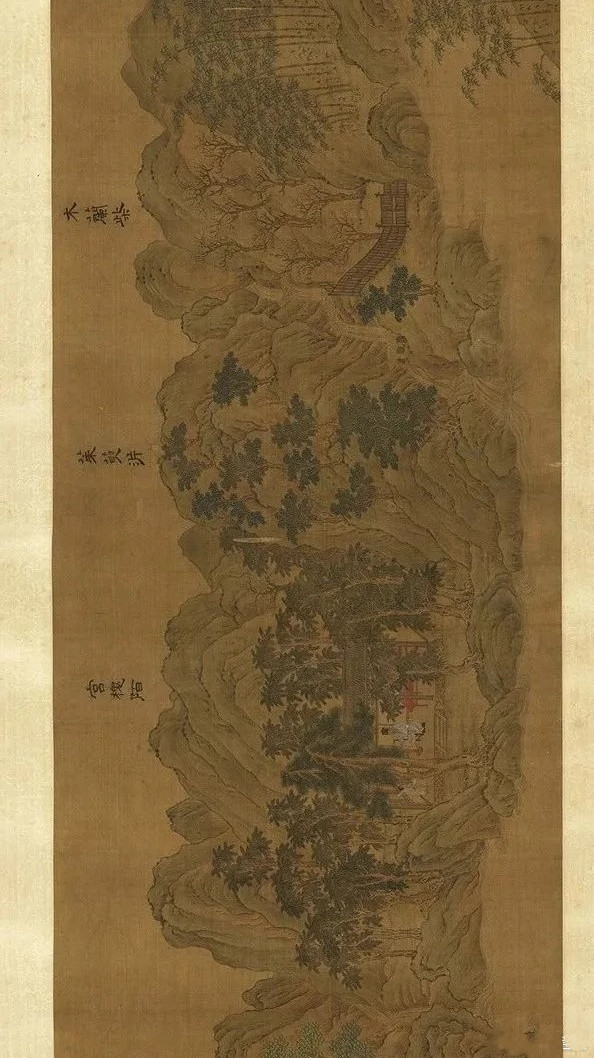 木蘭柴
茱萸沜
宮槐陌